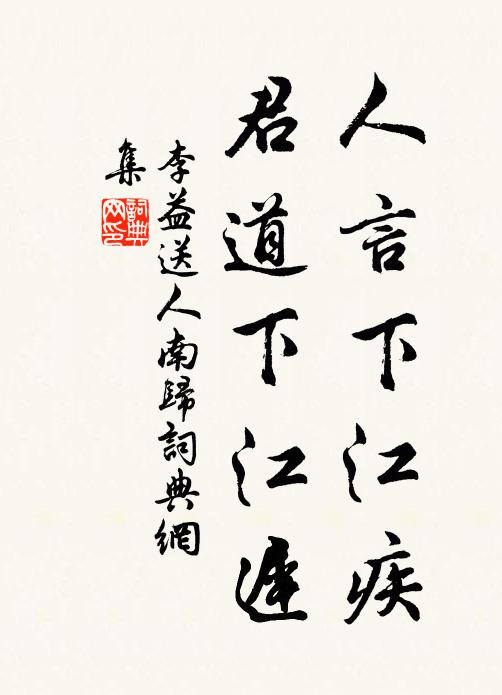 人言下江疾
君道下江遲
李益送人南歸詞典網
集
詞典网印